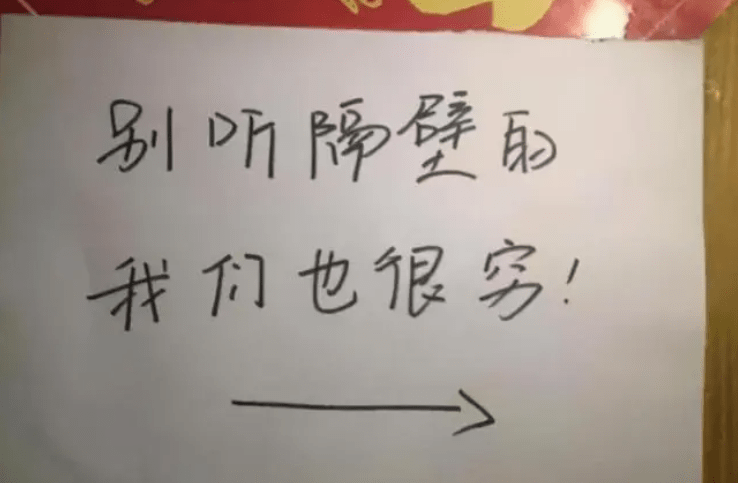 别听隔壁的
我们也很穷!